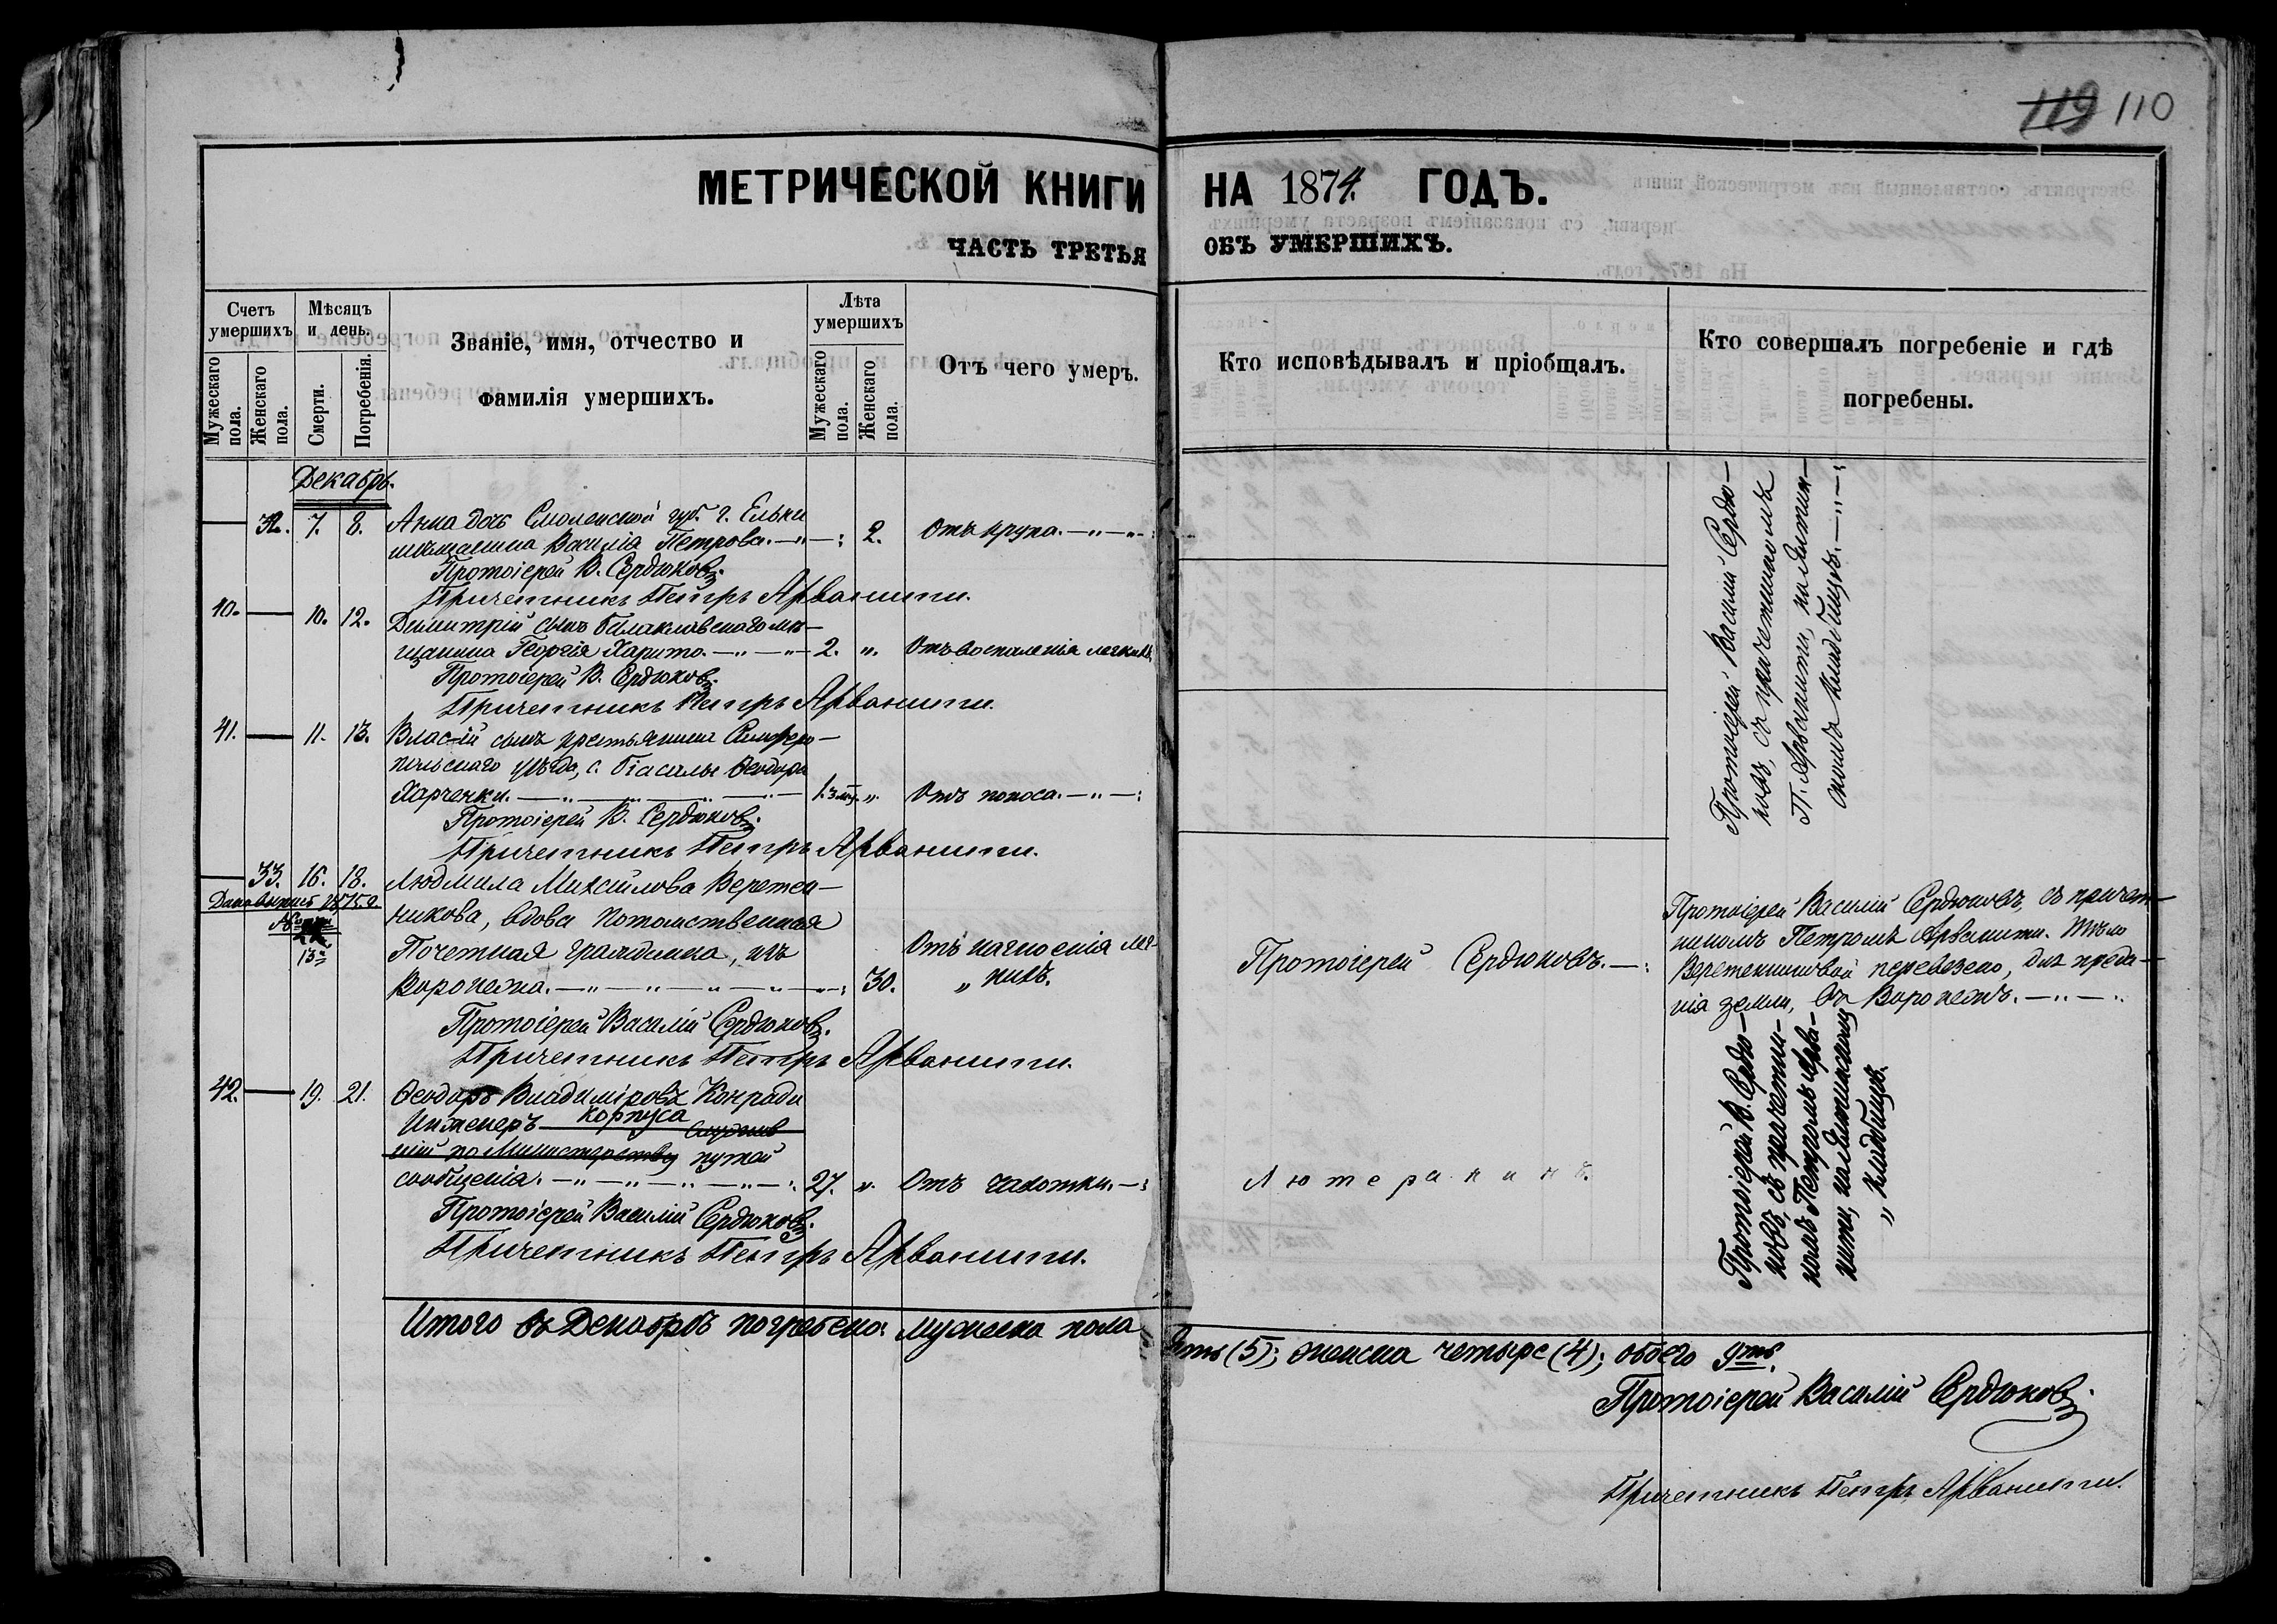 119 110
МЕТРИЧЕСКОЙ КНИГИ НА 1874. ГОДЪ.
ЧАСТЬ ТРЕТЬЯ ОБЪ УМЕРШИХЪ.
Счетъ умершихъ
Мужескаго пола.
Женскаго пола.
Мѣсяцъ и день.
Смерти.
Погребенія.
Званіе, имя, отчество и
фамилія умершихъ.
Лѣта умершихъ
Мужескаго пола.
Женскаго пола.
Отъ чего умеръ.
Кто исповѣдывалъ и пріобщалъ.
Кто совершалъ погребеніе и гдѣ
погребены.
Декабрь.
32. 7. 8. Анна дочь Смоленской губ. г. Ельни
мѣщанина Василія Петрова. 2. Отъ крупа.
Протоіерей В. Сердюковъ.
Причетникъ Петръ Арванити.
40. 10. 12. Димитрій сынъ Балаклавскаго мѣ-
щанина Георгія Харито. 2. „ Отъ воспаленія легкихъ.
Протоіерей В. Сердюковъ.
Причетникъ Петръ Арванити.
41. 11. 13. Власій сынъ крестьянина Симферо-
польскаго уѣзда, с. Біасалы Ѳеодора
Харченки. 1. 3 м. „ Отъ поноса.
Протоіерей В. Сердюковъ.
Причетникъ Петръ Арванити.
Протоіерей Василій Сердю-
ковъ, съ причетникомъ
П. Арванити, на Ялтин-
скомъ кладбищѣ.
33. 16. 18. Людмила Михайлова Веретен-
никова, вдова потомственная
Почетная гражданка, изъ
Воронежа. 30. Отъ нагноенія лег-
„ кихъ.
Дана выпись 1875 г.
№
13
Протоіерей Василій Сердюковъ.
Причетникъ Петръ Арванити.
Протоіерей Сердюковъ.
Протоіерей Василій Сердюковъ, съ причет-
никомъ Петромъ Арванити. Тѣло
Веретенниковой перевезено, для преда-
нія земли, въ Воронежъ.
42. 19. 21. Ѳеодоръ Владиміровъ Конради
Инженеръ корпуса
по Министерству путей
сообщенія. 27. „ Отъ чахотки.
Протоіерей Василій Сердюковъ.
Причетникъ Петръ Арванити.
Лютеранинъ.
Протоіерей В. Сердю-
ковъ, съ причетни-
комъ Петромъ Арва-
нити, на Ялтинскомъ
„ кладбищѣ.
Итого въ Декабрѣ погребено: мужеска пола пять (5); женска четыре (4); обоего 9ть.
Протоіерей Василій Сердюковъ.
Причетникъ Петръ Арванити.